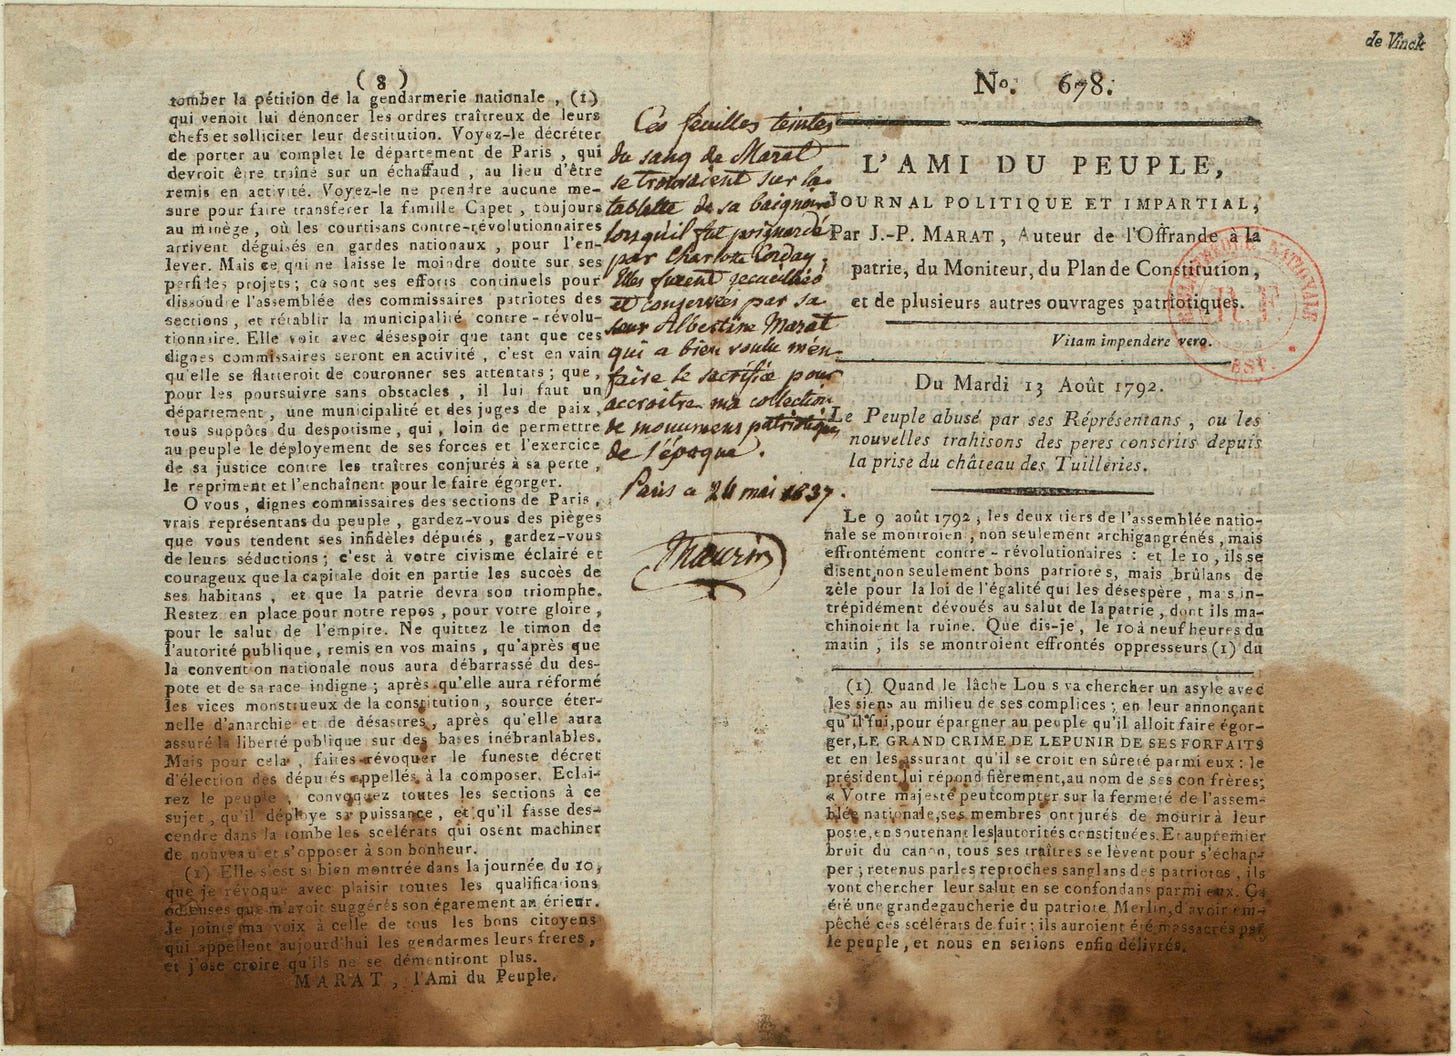 de Vinck
( 8 )
tomber la pétition de la gendarmerie nationale , (1)
qui venoit lui dénoncer les ordres traîtreux de leurs
chefs et solliciter leur destitution. Voyez-le décréter
de porter au complet le département de Paris , qui
devroit être traîné sur un échaffaud , au lieu d'être
remis en activité. Voyez-le ne prendre aucune me-
sure pour faire transférer la famille Capet , toujours
au minège, où les courtisans contre-révolutionnaires
arrivent déguisés en gardes nationaux , pour l'en-
lever. Mais ce qui ne laisse le moindre doute sur ses
perfides projets ; ce sont ses efforts continuels pour
dissoudre l'assemblée des commissaires patriotes des
sections , et rétablir la municipalité contre-révolu-
tionnaire. Elle voit avec désespoir que tant que ces
dignes commissaires seront en activité , c'est en vain
qu'elle se flatteroit de couronner ses attentats ; que,
pour les poursuivre sans obstacles , il lui faut un
département , une municipalité et des juges de paix,
tous suppôts du despotisme , qui , loin de permettre
au peuple le déployement de ses forces et l'exercice
de sa justice contre les traîtres conjurés à sa perte ,
le repriment et l'enchaînent pour le faire égorger.
O vous , dignes commissaires des sections de Paris ,
vrais représentans du peuple , gardez-vous des pièges
que vous tendent ses infidèles députés , gardez-vous
de leurs séductions ; c'est à votre civisme éclairé et
courageux que la capitale doit en partie les succès de
ses habitans , et que la patrie devra son triomphe.
Restez en place pour notre repos , pour votre gloire ,
pour le salut de l'empire. Ne quittez le timon de
l'autorité publique , remis en vos mains , qu'après que
la convention nationale nous aura débarrassé du des-
pote et de sa race indigne ; après qu'elle aura réformé
les vices monstrueux de la constitution , source éter-
nelle d'anarchie et de désastres , après qu'elle aura
assuré la liberté publique sur des bases inébranlables.
Mais pour cela , faites révoquer le funeste décret
d'élection des députés appellés à la composer. Eclai-
rez le peuple , convoquez toutes les sections à ce
sujet , qu'il déploye sa puissance , et qu'il fasse des-
cendre dans la tombe les scelérats qui osent machiner
de nouveau et s'opposer à son bonheur.
(1) Elle s'est si bien montrée dans la journée du 10,
que je révoque avec plaisir toutes les qualifications
odieuses que m'avoit suggérés son égarement antérieur.
Je joints ma voix à celle de tous les bons citoyens
qui appellent aujourd'hui les gendarmes leurs freres ,
et j'ose croire qu'ils ne se démentiront plus.
MARAT , l'Ami du Peuple.
Ces feuilles teintes
du sang de Marat
se trouvaient sur la
tablette de sa baignoire
lorsqu'il fut poignardé
par Charlotte Corday ;
Elles furent recueillies
et conservées par sa
sœur Albertine Marat
qui a bien voulu m'en
faire le sacrifice pour
accroitre ma collection
de monumens patriotiques
de l'époque .
Paris a 24 mai 1837.
Maurin
No. 678.
L'AMI DU PEUPLE,
JOURNAL POLITIQUE ET IMPARTIAL,
Par J.-P. MARAT, Auteur de l'Offrande à la
patrie, du Moniteur, du Plan de Constitution,
et de plusieurs autres ouvrages patriotiques.
Vitam impendere vero.
NATIONALE
EST.
Du Mardi 13 Août 1792.
Le Peuple abusé par ses Réprésentans , ou les
nouvelles trahisons des peres conscrits depuis
la prise du château des Tuilleries.
Le 9 août 1792 , les deux tiers de l'assemblée natio-
nale se montroien , non seulement archigangrénés , mais
effrontément contre-révolutionaires : et le 10 , ils se
disent non seulement bons patriotes, mais brûlans de
zèle pour la loi de l'égalité qui les désespère , mais in-
trépidément dévoués au salut de la patrie , dont ils ma-
chinoient la ruine. Que dis-je , le 10 à neuf heures du
matin , ils se montroient effrontés oppresseurs (1) du
(1) Quand le lâche Lou s va chercher un asyle avec
les siens au milieu de ses complices ; en leur annonçant
qu'il fui, pour épargner au peuple qu'il alloit faire égor-
ger, LE GRAND CRIME DE LE PUNIR DE SES FORFAITS
et en les assurant qu'il se croit en sûreté parmi eux : le
président lui répond fièrement, au nom de ses con frères;
« Votre majesté peut compter sur la fermeté de l'assem-
blée nationale, ses membres ont jurés de mourir à leur
poste, en soutenant les autorités constituées. Et au premier
bruit du canon, tous ses traîtres se lèvent pour s'échap-
per ; retenus par les reproches sanglans des patriotes , ils
vont chercher leur salut en se confondans parmi eux. Ça
été une grande gaucherie du patriote Merlin, d'avoir em-
pêché ces scélérats de fuir ; ils auroient été massacrés par
le peuple , et nous en serions enfin délivrés.